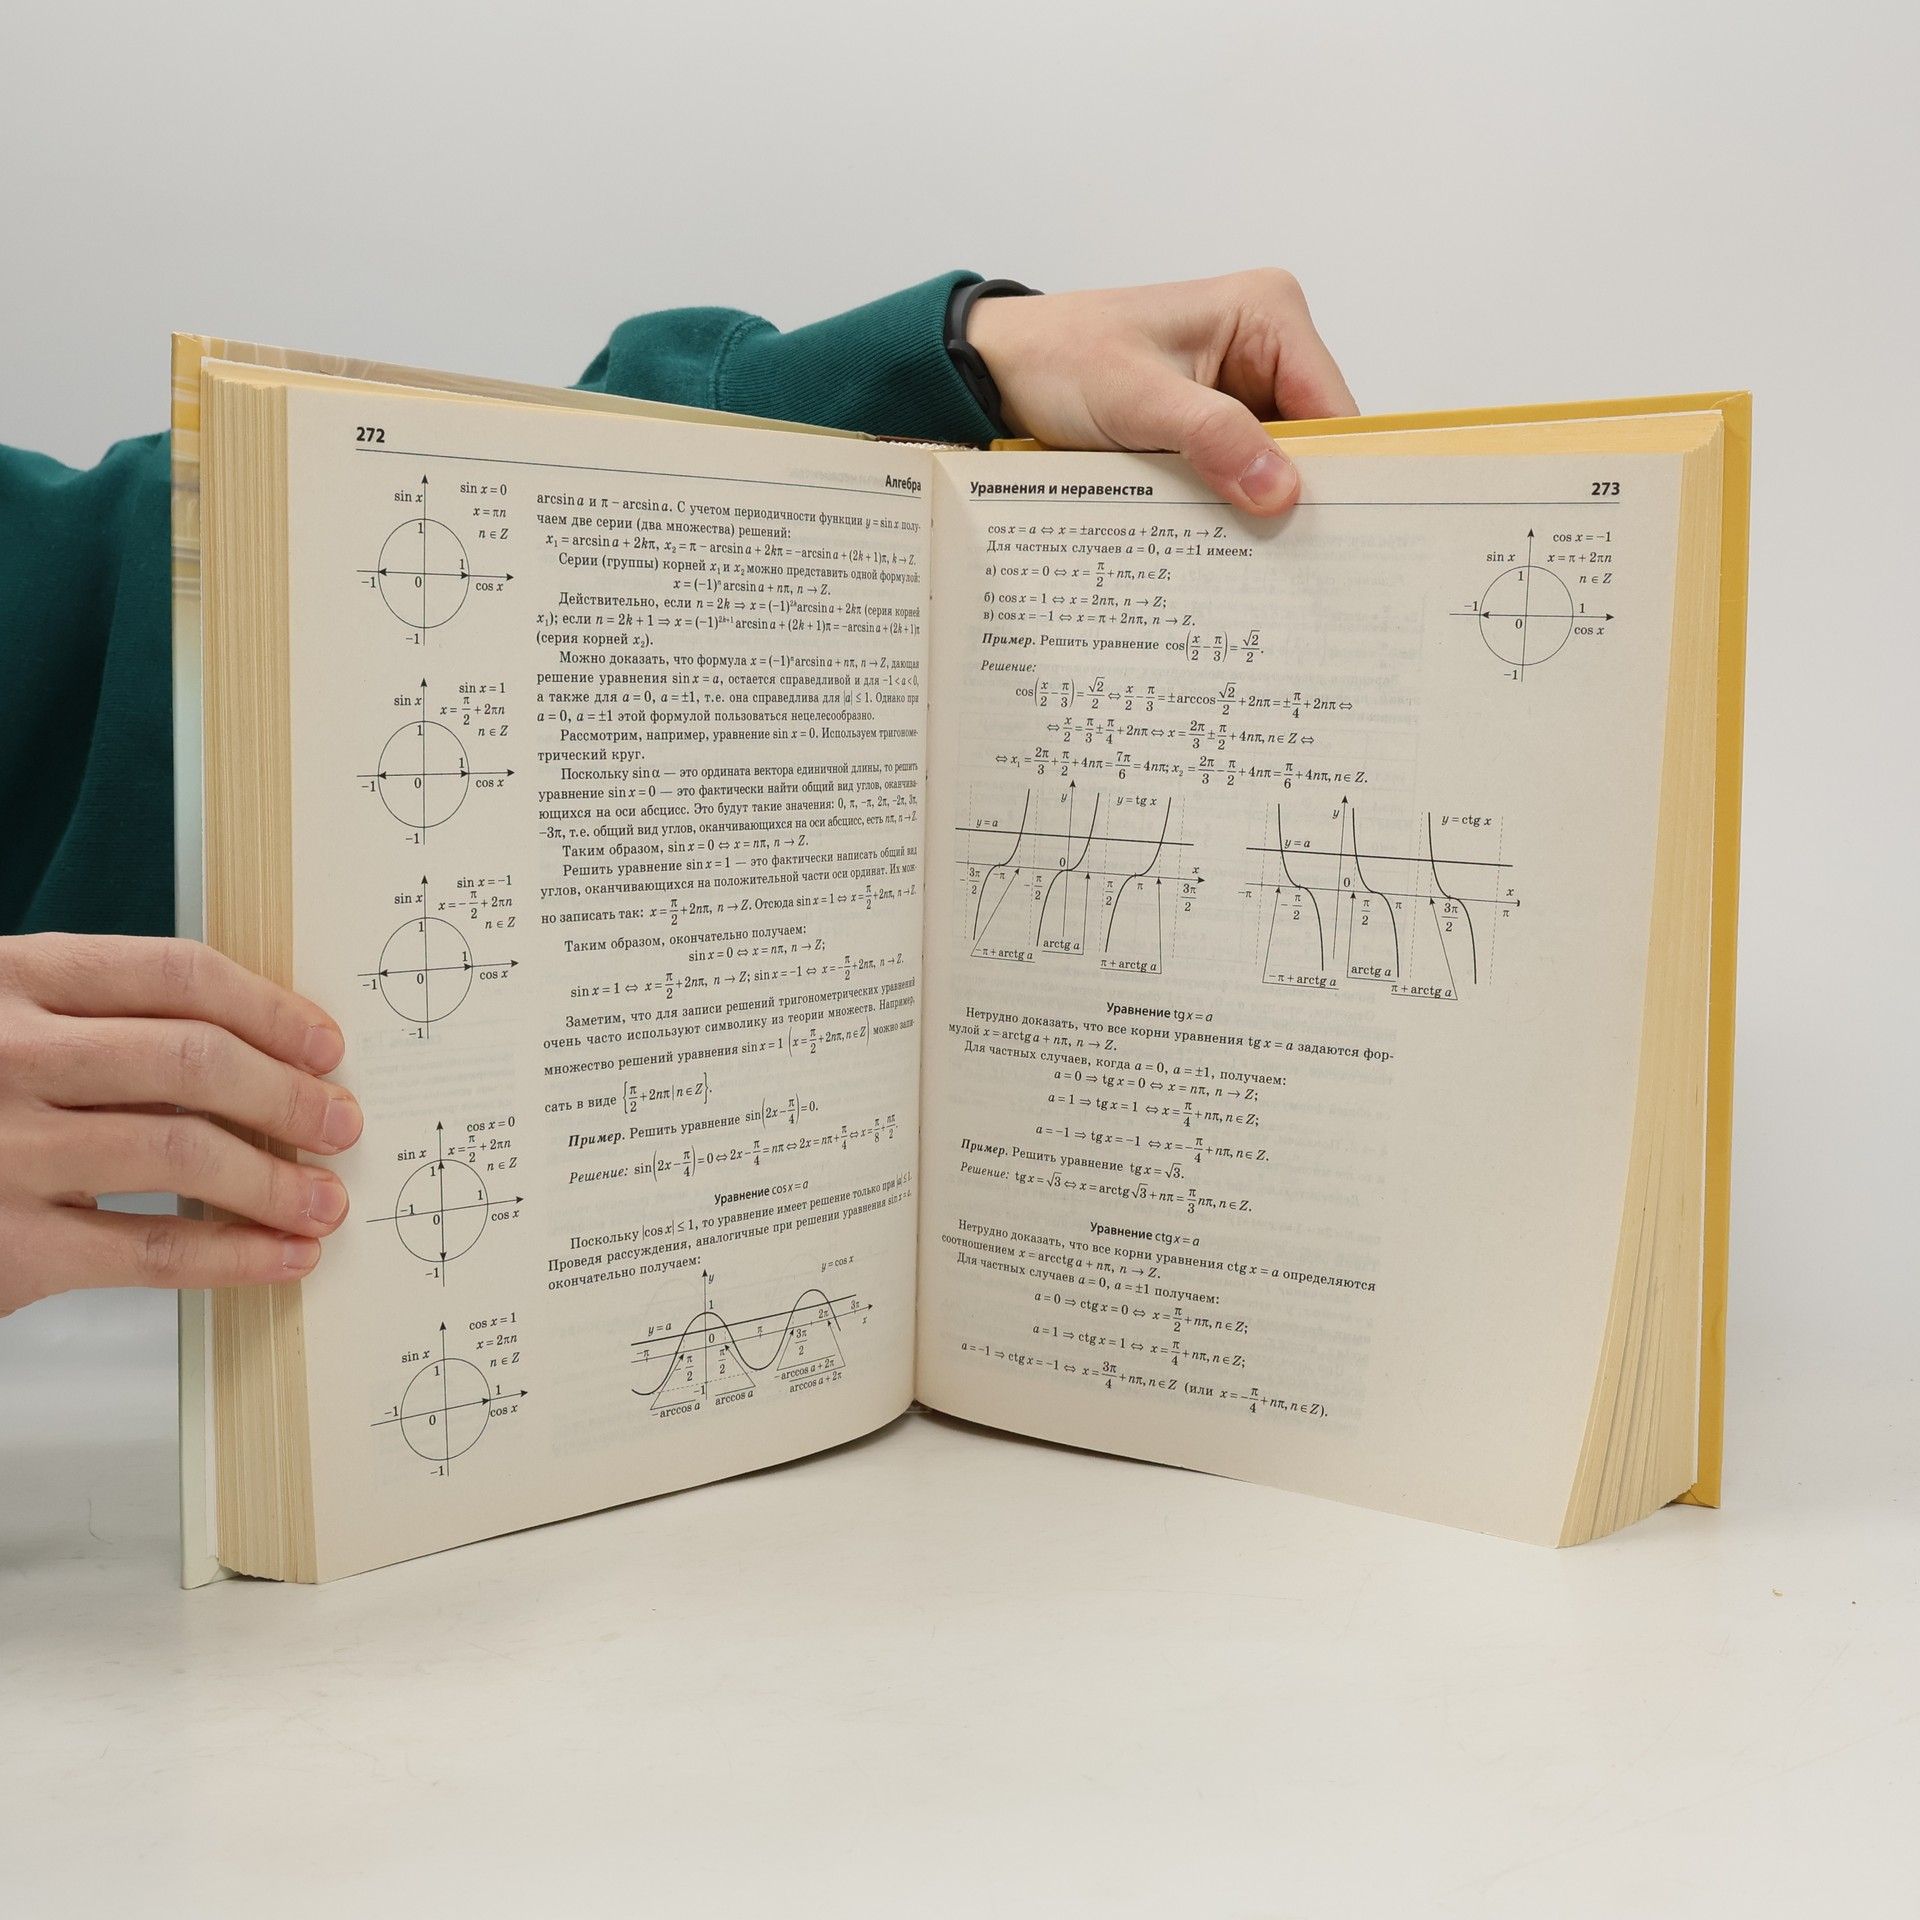 272
Алгебра
sin x
sin x = 0
x = πn
n ∈ Z
1
−1
0
1
cos x
−1
sin x
sin x = 1
x = π/2 + 2πn
n ∈ Z
1
−1
0
1
cos x
−1
sin x
sin x = −1
x = −π/2 + 2πn
n ∈ Z
1
−1
0
1
cos x
−1
sin x
cos x = 0
x = π/2 + 2πn
n ∈ Z
1
−1
0
1
cos x
−1
sin x
cos x = 1
x = 2πn
n ∈ Z
1
−1
0
1
cos x
−1
arcsin a и π − arcsin a. С учетом периодичности функции y = sin x полу-
чаем две серии (два множества) решений:
x₁ = arcsin a + 2kπ, x₂ = π − arcsin a + 2kπ = −arcsin a + (2k + 1)π, k → Z.
Серии (группы) корней x₁ и x₂ можно представить одной формулой:
x = (−1)ⁿ arcsin a + nπ, n → Z.
Действительно, если n = 2k ⇒ x = (−1)²ᵏ arcsin a + 2kπ (серия корней
x₁); если n = 2k + 1 ⇒ x = (−1)²ᵏ⁺¹ arcsin a + (2k + 1)π = −arcsin a + (2k + 1)π
(серия корней x₂).
Можно доказать, что формула x = (−1)ⁿ arcsin a + nπ, n → Z, дающая
решение уравнения sin x = a, остается справедливой и для −1 < a < 0,
а также для a = 0, a = ±1, т.е. она справедлива для |a| ≤ 1. Однако при
a = 0, a = ±1 этой формулой пользоваться нецелесообразно.
Рассмотрим, например, уравнение sin x = 0. Используем тригономе-
трический круг.
Поскольку sin α — это ордината вектора единичной длины, то решить
уравнение sin x = 0 — это фактически найти общий вид углов, оканчива-
ющихся на оси абсцисс. Это будут такие значения: 0, π, −π, 2π, −2π, 3π,
−3π, т.е. общий вид углов, оканчивающихся на оси абсцисс, есть nπ, n → Z.
Таким образом, sin x = 0 ⇔ x = nπ, n → Z.
Решить уравнение sin x = 1 — это фактически написать общий вид
углов, оканчивающихся на положительной части оси ординат. Их мож-
но записать так: x = π/2 + 2nπ, n → Z. Отсюда sin x = 1 ⇔ x = π/2 + 2nπ, n → Z.
Таким образом, окончательно получаем:
sin x = 0 ⇔ x = nπ, n → Z;
sin x = 1 ⇔ x = π/2 + 2nπ, n → Z; sin x = −1 ⇔ x = −π/2 + 2nπ, n → Z.
Заметим, что для записи решений тригонометрических уравнений
очень часто используют символику из теории множеств. Например,
множество решений уравнения sin x = 1 (x = π/2 + 2nπ, n ∈ Z) можно запи-
сать в виде {π/2 + 2nπ | n ∈ Z}.
Пример. Решить уравнение sin(2x − π/4) = 0.
Решение: sin(2x − π/4) = 0 ⇔ 2x − π/4 = nπ ⇔ 2x = nπ + π/4 ⇔ x = π/8 + nπ/2.
Уравнение cos x = a
Поскольку |cos x| ≤ 1, то уравнение имеет решение только при |a| ≤ 1.
Проведя рассуждения, аналогичные при решении уравнения sin x = a,
окончательно получаем:
y
y = cos x
1
y = a
−π
−π/2
0
π/2
π
3π/2
2π
3π
x
−1
−arccos a
arccos a
−arccos a + 2π
arccos a + 2π
Уравнения и неравенства
273
cos x = a ⇔ x = ±arccos a + 2nπ, n → Z.
Для частных случаев a = 0, a = ±1 имеем:
а) cos x = 0 ⇔ x = π/2 + nπ, n ∈ Z;
б) cos x = 1 ⇔ x = 2nπ, n → Z;
в) cos x = −1 ⇔ x = π + 2nπ, n → Z.
Пример. Решить уравнение cos(x/2 − π/3) = √2/2.
Решение:
cos(x/2 − π/3) = √2/2 ⇔ x/2 − π/3 = ±arccos √2/2 + 2nπ = ±π/4 + 2nπ ⇔
⇔ x/2 = π/3 ± π/4 + 2nπ ⇔ x = 2π/3 ± π/2 + 4nπ, n ∈ Z ⇔
⇔ x₁ = 2π/3 + π/2 + 4nπ = 7π/6 = 4nπ; x₂ = 2π/3 − π/2 + 4nπ = π/6 + 4nπ, n ∈ Z.
cos x = −1
sin x
x = π + 2πn
n ∈ Z
1
−1
0
1
cos x
−1
y
y = tg x
y = a
−3π/2
−π
−π/2
0
π/2
π
3π/2
x
−π + arctg a
arctg a
π + arctg a
y
y = ctg x
y = a
−π
−π/2
0
π/2
π
3π/2
π
x
−π + arctg a
arctg a
π + arctg a
Уравнение tg x = a
Нетрудно доказать, что все корни уравнения tg x = a задаются фор-
мулой x = arctg a + nπ, n → Z.
Для частных случаев, когда a = 0, a = ±1, получаем:
a = 0 ⇒ tg x = 0 ⇔ x = nπ, n → Z;
a = 1 ⇒ tg x = 1 ⇔ x = π/4 + nπ, n ∈ Z;
a = −1 ⇒ tg x = −1 ⇔ x = −π/4 + nπ, n ∈ Z.
Пример. Решить уравнение tg x = √3.
Решение: tg x = √3 ⇔ x = arctg √3 + nπ = π/3 nπ, n ∈ Z.
Уравнение ctg x = a
Нетрудно доказать, что все корни уравнения ctg x = a определяются
соотношением x = arcctg a + nπ, n → Z.
Для частных случаев a = 0, a = ±1 получаем:
a = 0 ⇒ ctg x = 0 ⇔ x = π/2 + nπ, n ∈ Z;
a = 1 ⇒ ctg x = 1 ⇔ x = π/4 + nπ, n ∈ Z;
a = −1 ⇒ ctg x = −1 ⇔ x = 3π/4 + nπ, n ∈ Z (или x = −π/4 + nπ, n ∈ Z).